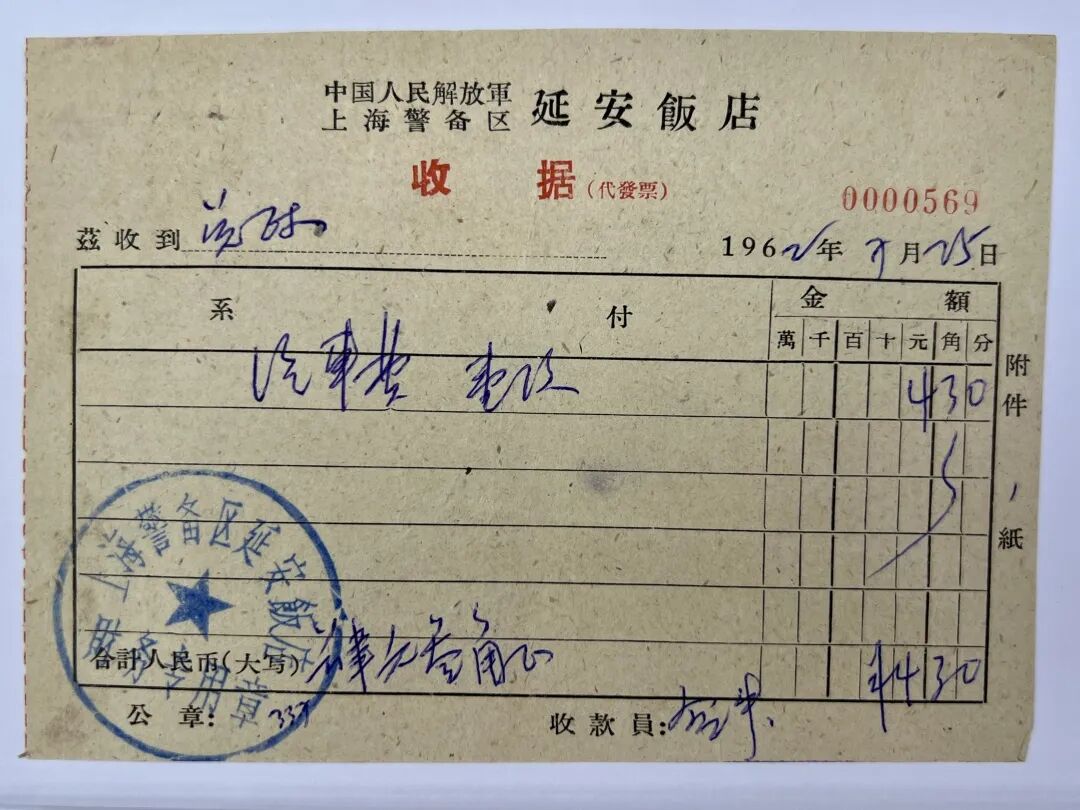 中国人民解放軍
上海警备区 延安飯店
收 据 (代發票)
0000569
茲收到
1962年 月 25日
系 付 金 額
萬 千 百 十 元 角 分
汽車费 430
附件 紙
上海警备区延安飯店
财务专用章
合計人民币(大写) 肆元叁角正 ¥430
公章: 收款員: